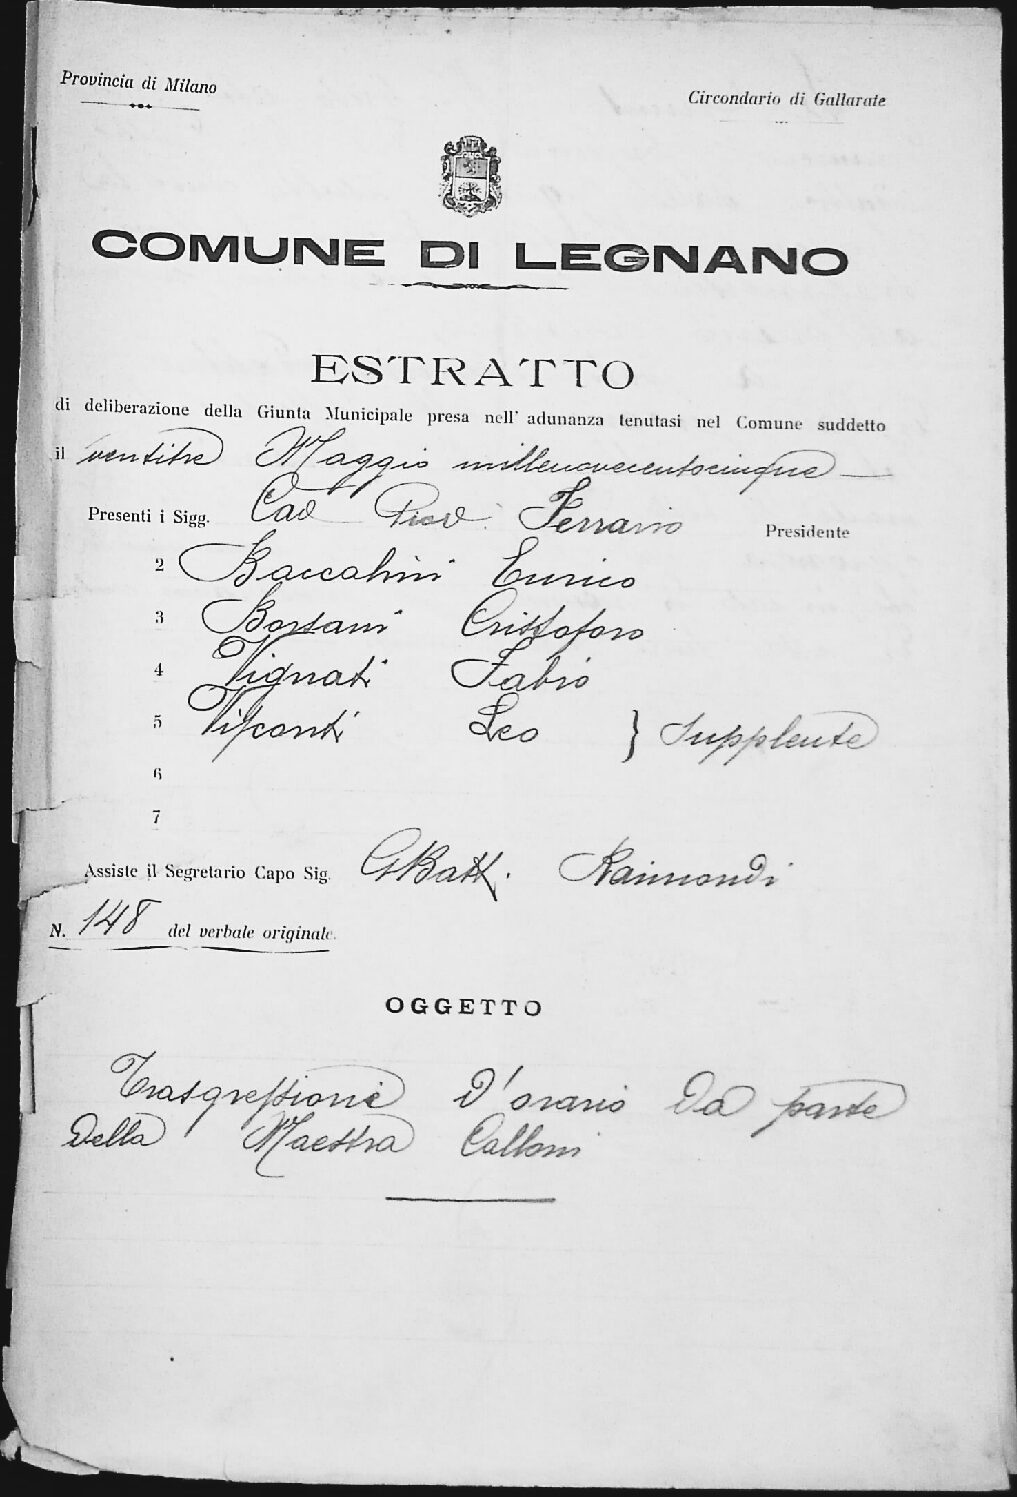 Provincia di Milano
Circondario di Gallarate
COMUNE DI LEGNANO
ESTRATTO
di deliberazione della Giunta Municipale presa nell' adunanza tenutasi nel Comune suddetto
il ventitre Maggio millenovecentocinque
Presenti i Sigg. Cav Ferrario Presidente
2 Baccalini Enrico
3 Borsani Cristoforo
4 Vignati Fabio
5 Visconti Leo } Supplente
6
7
Assiste il Segretario Capo Sig. GBatt. Raimondi
N. 148 del verbale originale.
OGGETTO
Trasgressione d'orario da parte
della Maestra Calloni